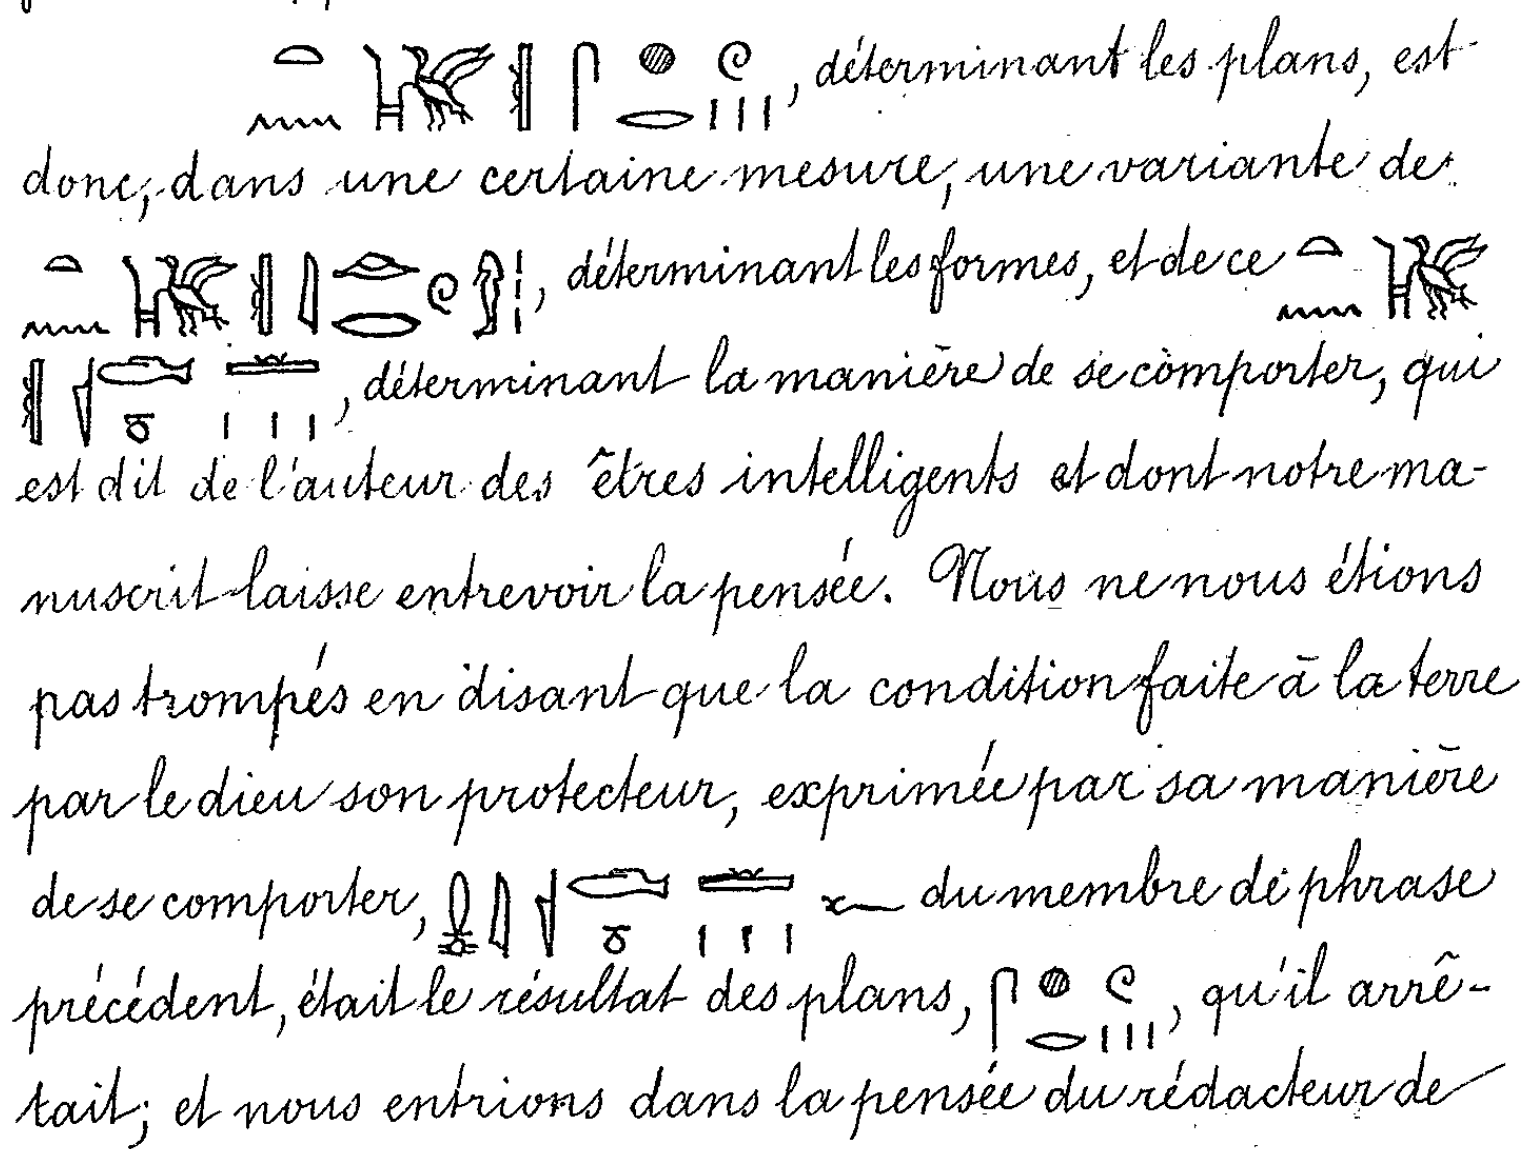 , déterminant les plans, est
donc, dans une certaine mesure, une variante de
, déterminant les formes, et de ce
, déterminant la manière de se comporter, qui
est dit de l'auteur des êtres intelligents et dont notre ma-
nuscrit laisse entrevoir la pensée. Nous ne nous étions
pas trompés en disant que la condition faite à la terre
par le dieu son protecteur, exprimée par sa manière
de se comporter, du membre de phrase
précédent, était le résultat des plans, , qu'il arrê-
tait; et nous entrions dans la pensée du rédacteur de